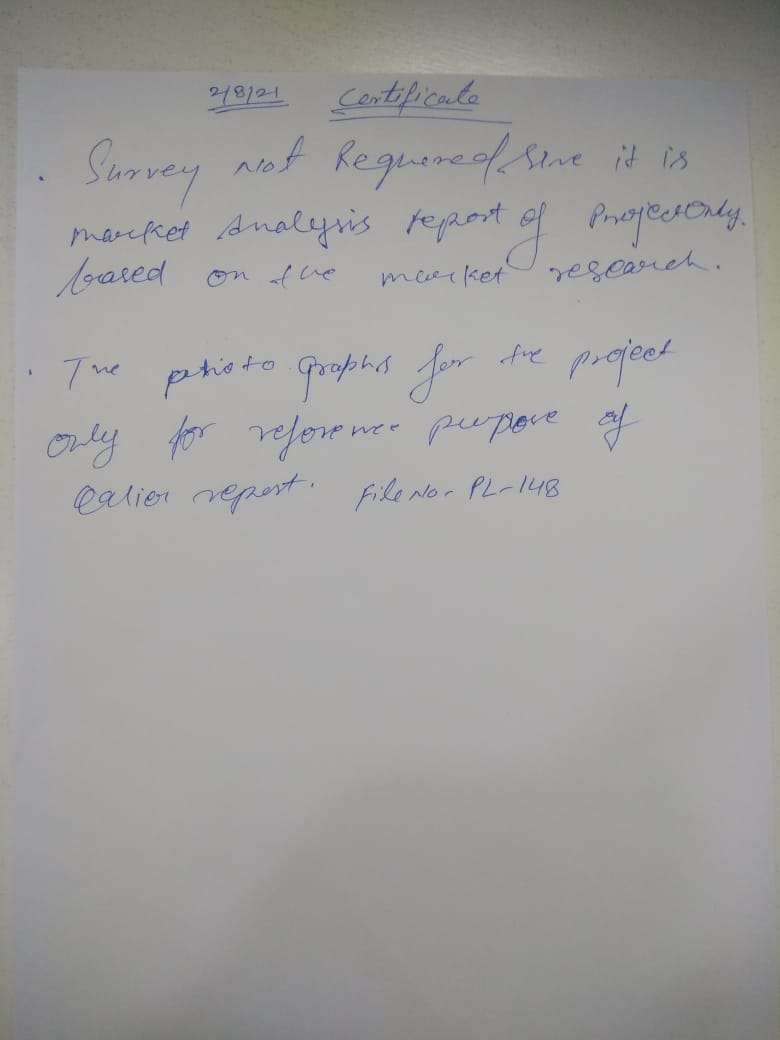 2/8/21 Certificate
. Survey not Requered Sine it is
market Analysis report of Project Only.
based on the market research.
. The photo graphs for the project
only for reference purpose of
Ealier report. File No- PL-148